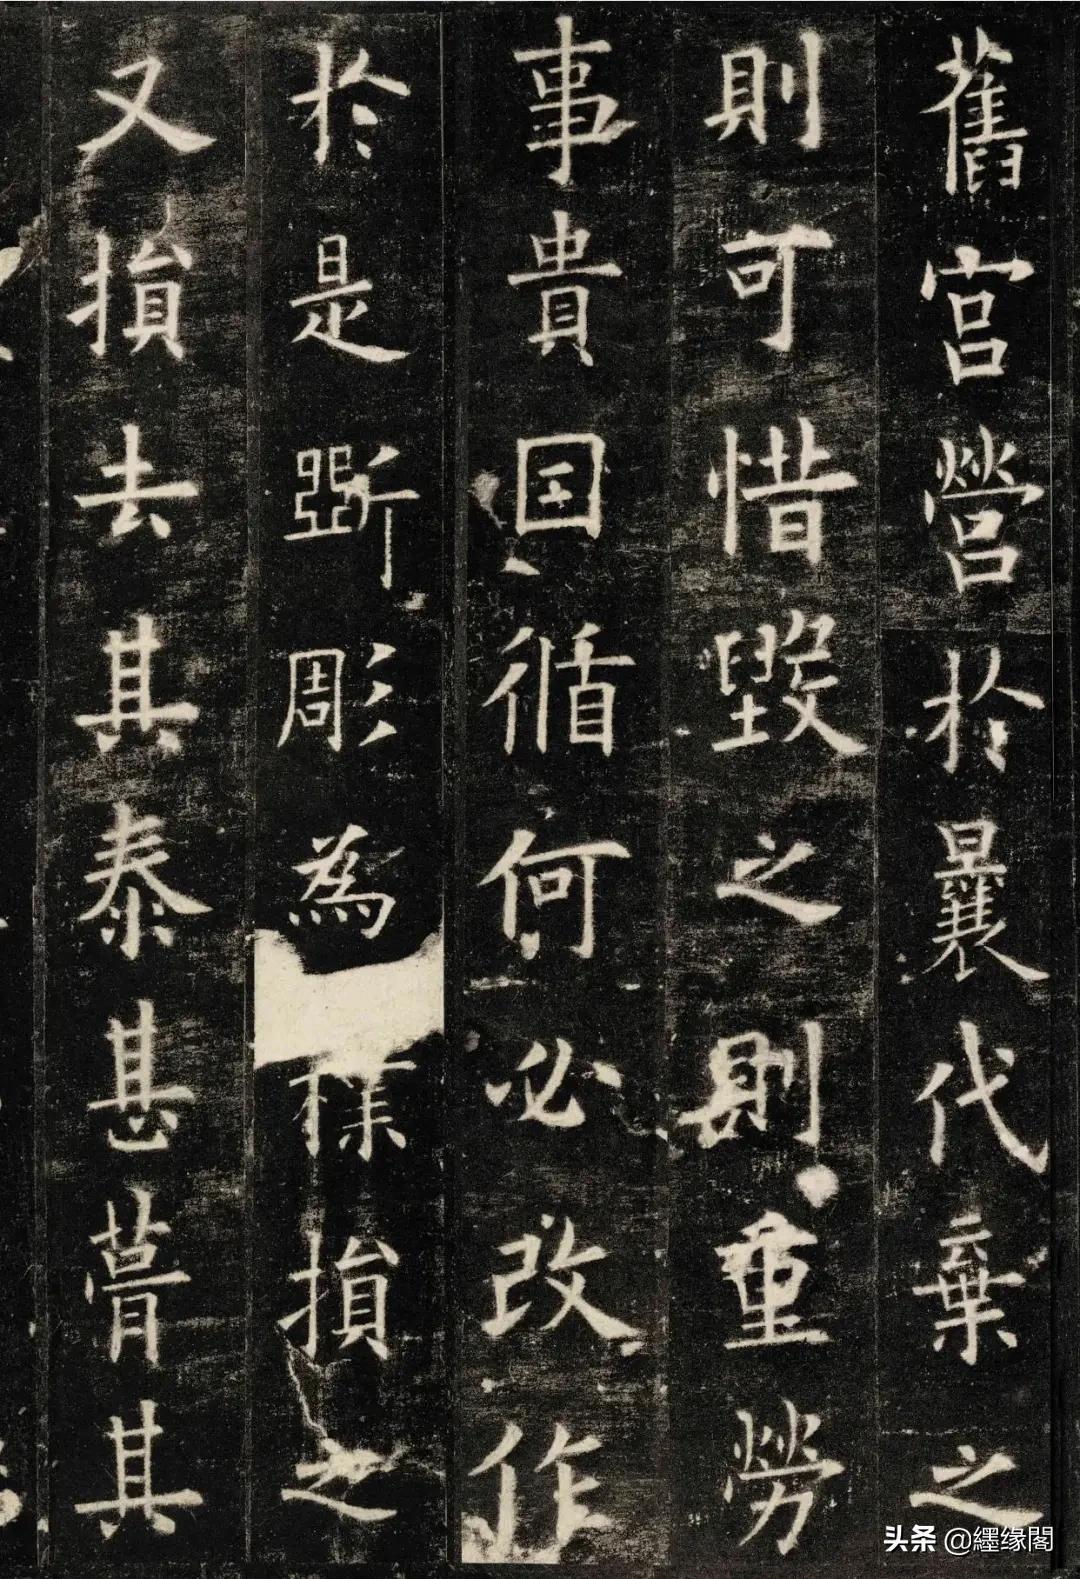 舊宮營於曩代棄之
則可惜毀之則重勞
事貴因循何必改作
於是斲彫為樸損之
又損去其泰甚葺其
头条 @纆缘閣